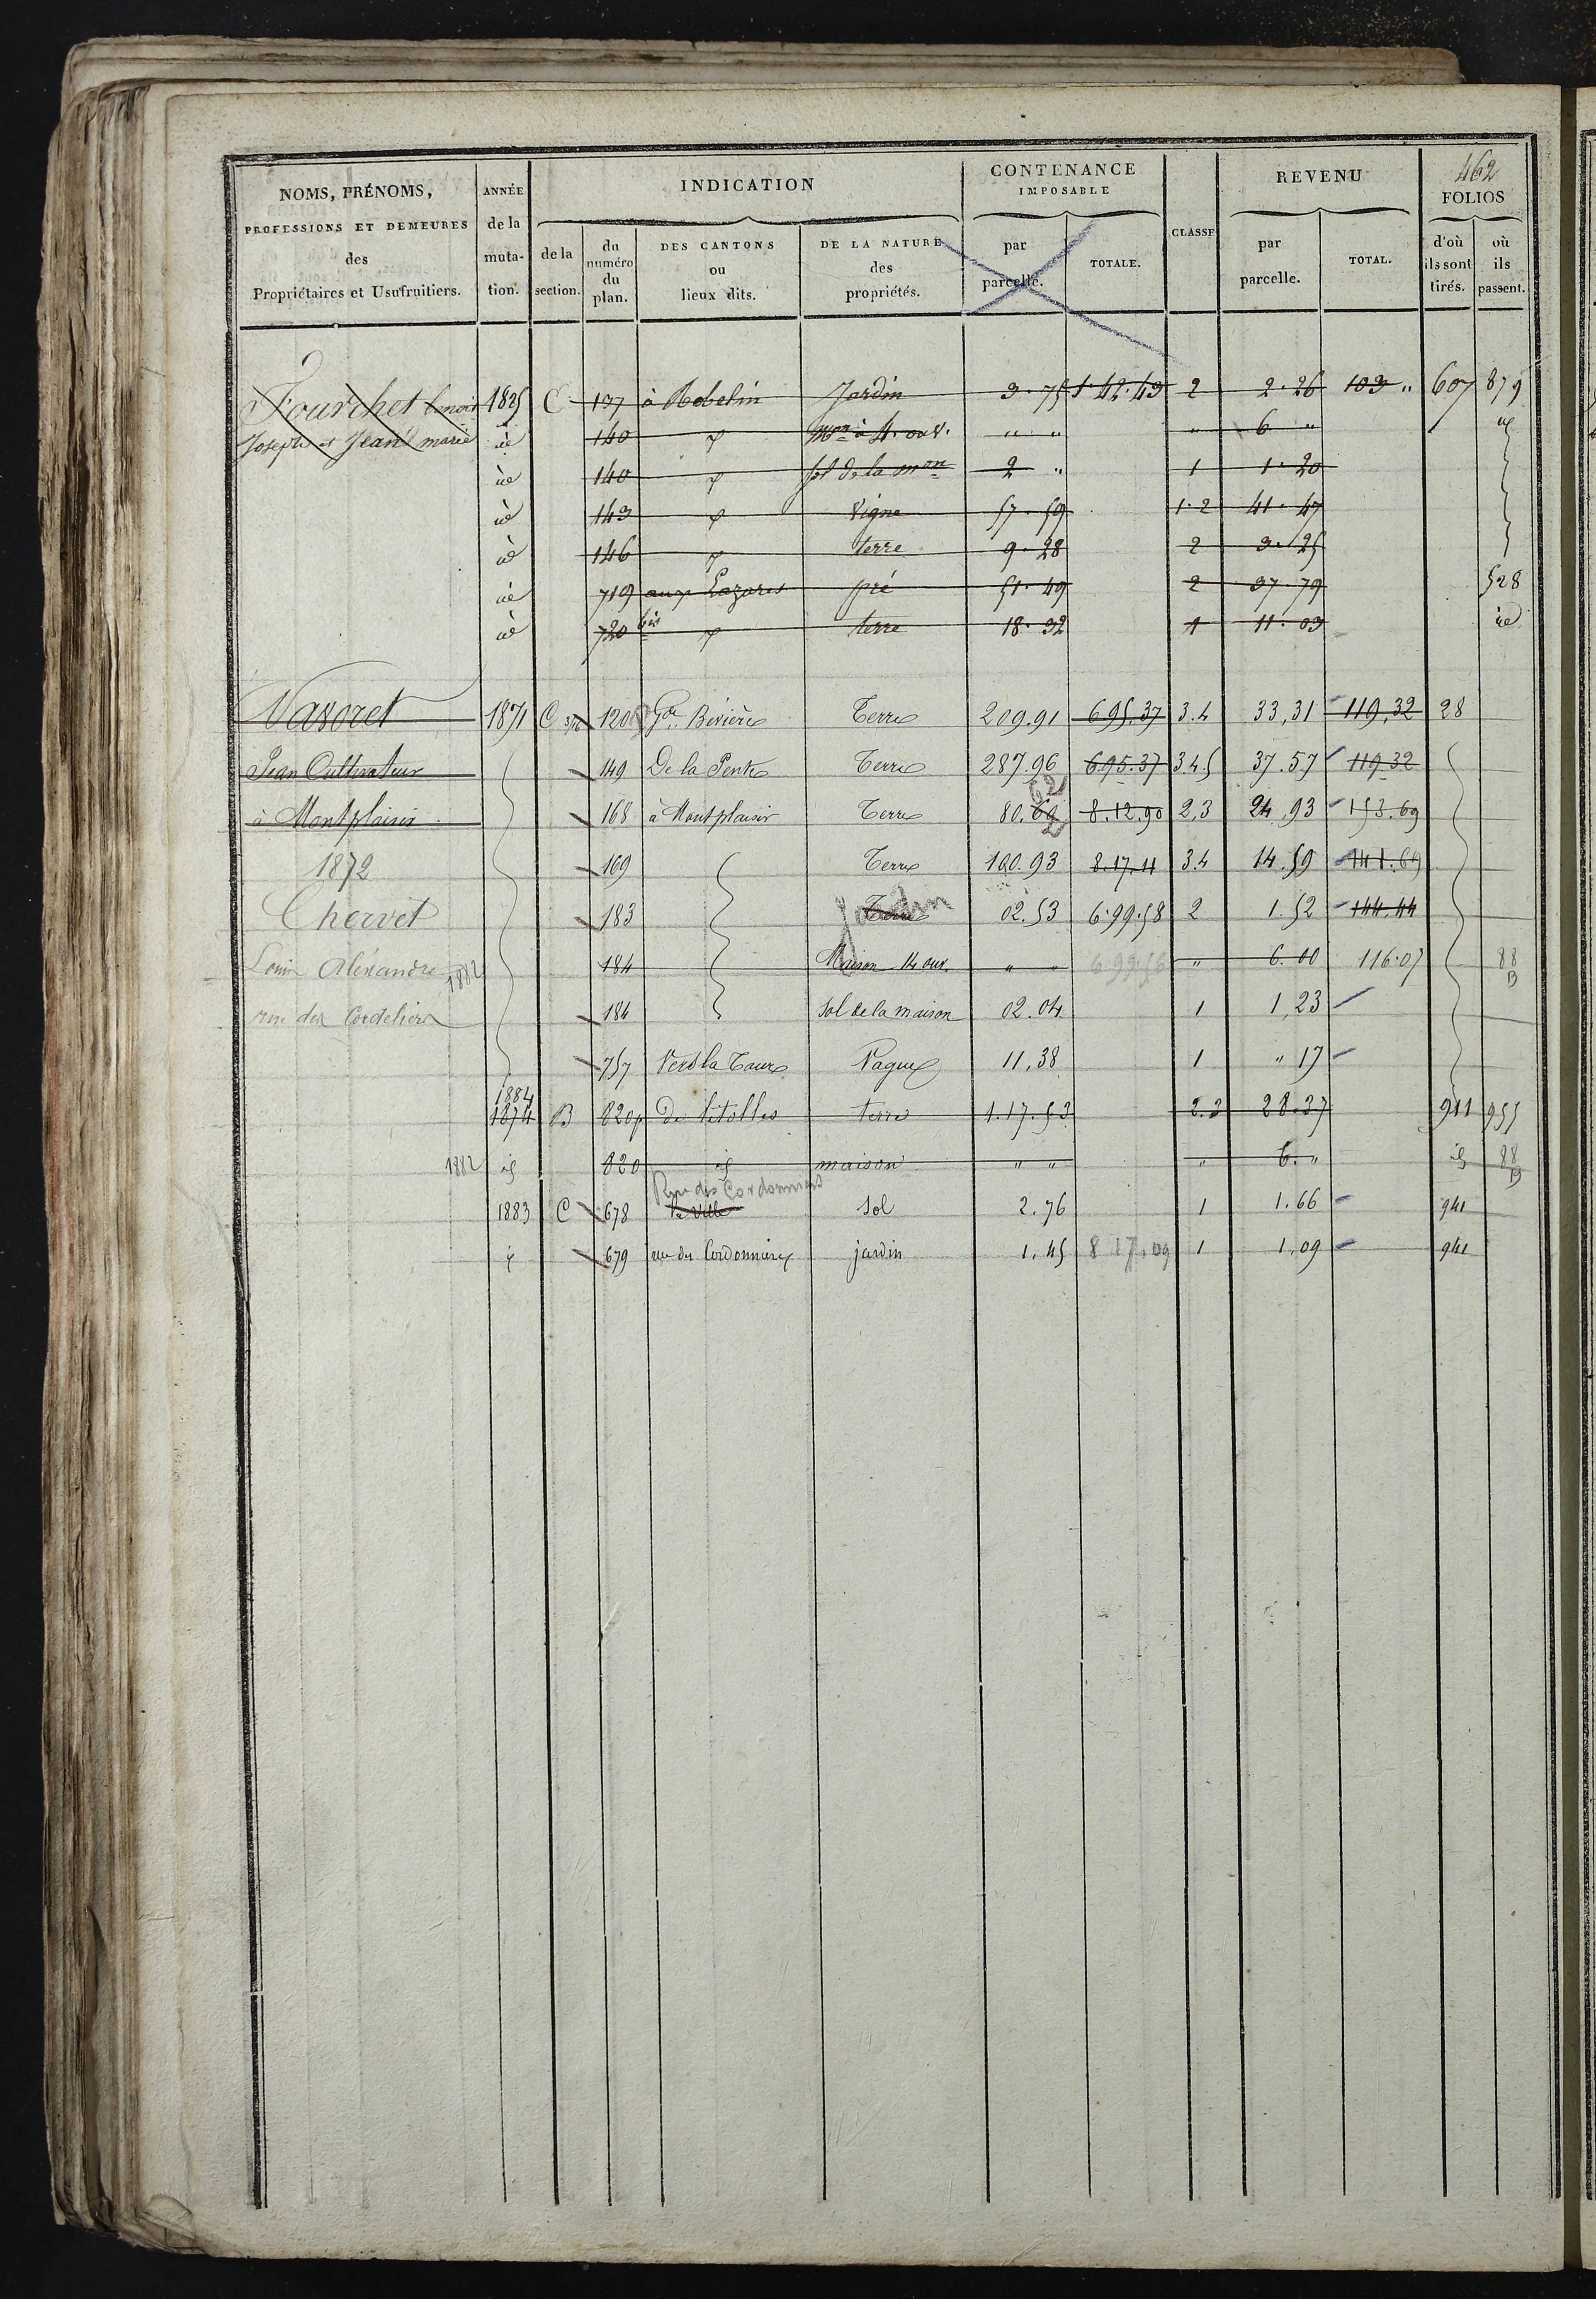 462
NOMS, PRÉNOMS, PROFESSIONS ET DEMEURES des Propriétaires et Usufruitiers.
ANNÉE de la muta- tion.
INDICATION
de la section.
du numéro du plan.
DES CANTONS ou lieux dits.
DE LA NATURE des propriétés.
CONTENANCE IMPOSABLE
par parcelle.
TOTALE.
CLASSE
REVENU
par parcelle.
TOTAL.
FOLIOS
d'où ils sont tirés.
où ils passent.
Fourchet benoit 1825 C 137 à Robelin Jardin 3.75 1.42.43 2 2.26 103 " 607 879
Joseph et Jean marie id 140 Mon à 4. ouv. " " " 6 "
id 140 sol de la mon 2 " 1 1.20
id 143 Vigne 57.59 1.2 41.47
id 146 terre 9.28 2 3.25
id 719 aux Lazares pré 51.49 2 37.79 528
id 720 bis terre 18.32 1 11.03 id
Vavoret 1871 C 120 Gde Bévière Terre 209.91 695.37 3.4 33,31 119,32 28
Jean Cultivateur 149 De la Pente Terre 287.96 6.95.37 3.4.5 37.57 119.32
à Montplaisir 168 à Montplaisir Terre 80.62 8.12.90 2,3 24,93 153.69
1872 169 Terre 100.93 8.17.11 3.4 14.59 141.69
Chervet 183 Terre Jardin 02.53 6.99.58 2 1.52 144.44
Louis Aléxandre 1882 184 Maison 14 ouv. " " 699.56 " 6.00 116.07 88 B
rue des Cordeliers 184 Sol de la maison 02.04 1 1,23
757 Vers la Tour Vague 11,38 1 " 17
1884
1874 B 820p De l'étolles terre 1.17.53 2.3 28.37 911 955
1882 id 820 id maison " " " 6. " id 88 B
Rue des Cordonniers
1883 C 678 la Ville Sol 2.76 1 1.66 941
679 rue des Cordonniers jardin 1.45 817.09 1 1,09 941